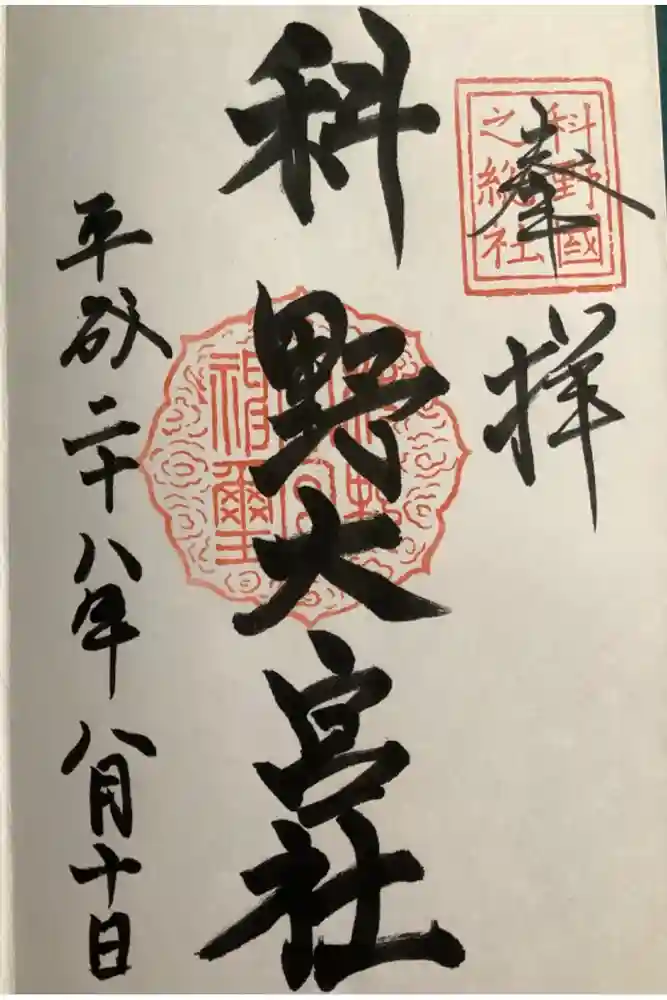 奉拝
科野國
之総社
科野大宮社
神璽
平成二十八年八月十日